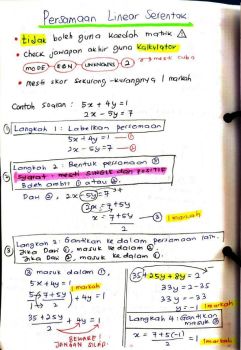 Persamaan Linear Serentak
• tidak boleh guna kaedah matrik
• check jawapan akhir guna kalkulator
MODE EQN UNKNOWNS 2 → mesti cuba
• mesti skor sekurang-kurangnya 1 markah
Contoh soalan: 5x + 4y = 1
2x - 5y = 7
① Langkah 1: Labelkan persamaan
5x + 4y = 1 ①
2x - 5y = 7 ②
② Langkah 2: Bentuk persamaan ③
syarat: mesti SINGLE dan POSITIF
Boleh ambil ① atau ②.
Dari ②, 2x - 5y = 7
2x = 7 + 5y
x = 7 + 5y
2
③
1 markah
③ Langkah 3: Gantikan ke dalam persamaan lain.
Jika Dari ①, masuk ke dalam ②.
Jika Dari ②, masuk ke dalam ①.
③ masuk dalam ①,
5x + 4y = 1
1 markah
5(7 + 5y) + 4y = 1
2
35 + 25y + 4y = 1
2
BEWARE!
JANGAN SILAP.
35 + 25y + 8y = 2
33y = 2 - 35
33y = -33
y = -1
1 markah
Langkah 4: Gantikan
masuk ③
x = 7 + 5(-1)
2
= 1
1 markah